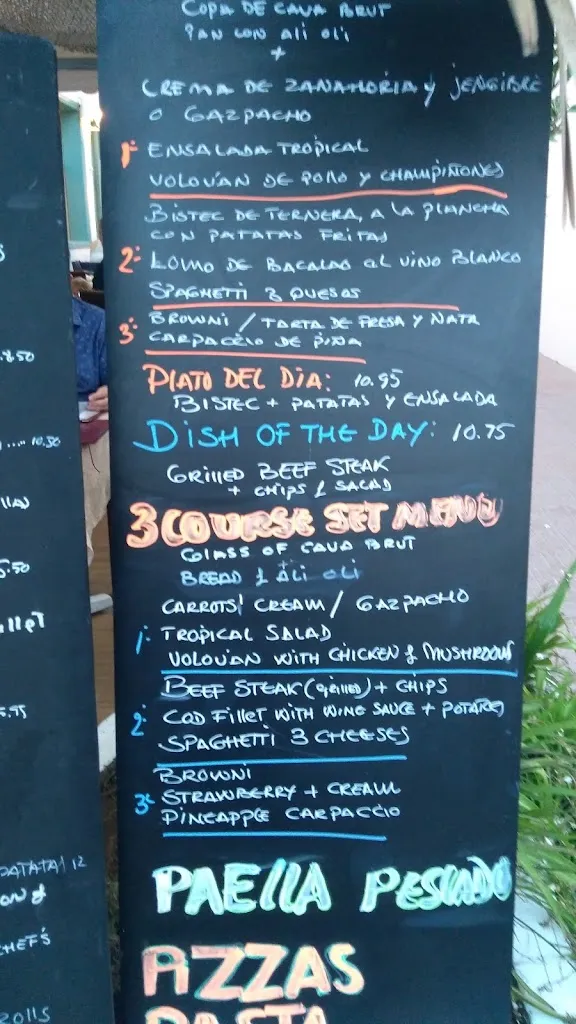 COPA DE CAVA BRUT
PAN CON ALI OLI
+
CREMA DE ZANAHORIA y JENGIBRE
O GAZPACHO
1º ENSALADA TROPICAL
VOLOVAN DE POLLO Y CHAMPIÑONES
BISTEC DE TERNERA, A LA PLANCHA
CON PATATAS FRITAS
2º LOMO DE BACALAO al VINO BLANCO
SPAGHETTI 3 QUESOS
3º BROWNI / TARTA DE FRESA Y NATA
CARPACCIO DE PIÑA
PLATO DEL DIA: 10.95
BISTEC + PATATAS Y ENSALADA
DISH OF THE DAY: 10.75
GRILLED BEEF STEAK
+ CHIPS & SALAD
3 COURSE SET MENU
GLASS OF CAVA BRUT
BREAD & ALI OLI
CARROTS' CREAM / GAZPACHO
1º TROPICAL SALAD
VOLOVAN WITH CHICKEN & MUSHROOM
BEEF STEAK (grilled) + CHIPS
2º COD FILLET WITH WINE SAUCE + POTATOES
SPAGHETTI 3 CHEESES
BROWNI
3º STRAWBERRY + CREAM
PINEAPPLE CARPACCIO
PAELLA PESCADO
PIZZAS
PASTA
8.50
.... 10.50
5.50
5.75
PATATAS 12
CHEF'S
ROLLS